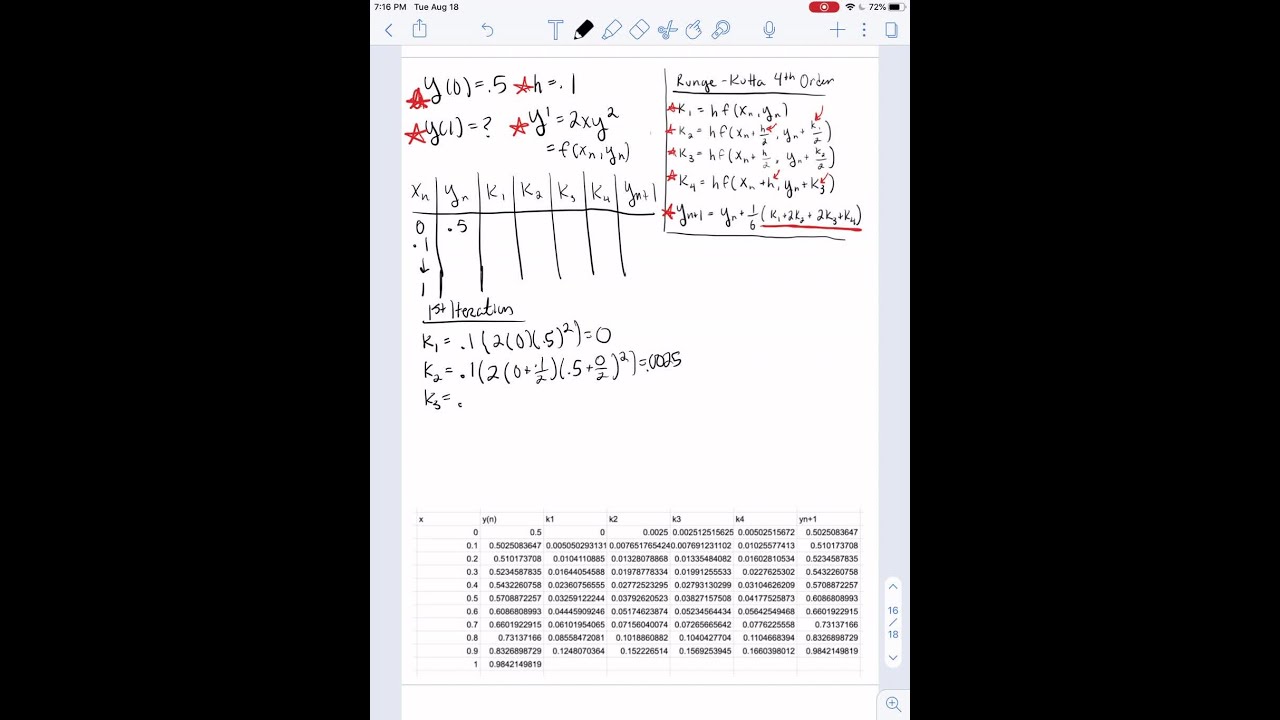 7:16 PM Tue Aug 18
72%
T
y(0) = .5 h = .1
y(1) = ? y' = 2xy²
= f(xₙ, yₙ)
xₙ yₙ K₁ K₂ K₃ K₄ yₙ+1
0 .5
.1
↓
1
Runge-Kutta 4th Order
K₁ = hf(xₙ, yₙ)
K₂ = hf(xₙ + h/2, yₙ + K₁/2)
K₃ = hf(xₙ + h/2, yₙ + K₂/2)
K₄ = hf(xₙ + h, yₙ + K₃)
yₙ+1 = yₙ + 1/6 (K₁ + 2K₂ + 2K₃ + K₄)
1st Iteration
K₁ = .1(2(0)(.5)²) = 0
K₂ = .1(2(0 + .1/2)(.5 + 0/2)²) = .0025
K₃ = .
x y(n) k1 k2 k3 k4 yn+1
0 0.5 0 0.0025 0.002512515625 0.00502515672 0.5025083647
0.1 0.5025083647 0.005050293131 0.0076517654240 0.007691231102 0.01025577413 0.510173708
0.2 0.510173708 0.0104110885 0.01328078868 0.01335484082 0.01602810534 0.5234587835
0.3 0.5234587835 0.01644054588 0.01978778334 0.01991255533 0.0227625302 0.5432260758
0.4 0.5432260758 0.02360756555 0.02772523295 0.02793130299 0.03104626209 0.5708872257
0.5 0.5708872257 0.03259122244 0.03792620523 0.03827157508 0.04177525873 0.6086808993
0.6 0.6086808993 0.04445909246 0.05174623874 0.05234564434 0.05642549468 0.6601922915
0.7 0.6601922915 0.06101954065 0.07156040074 0.07265665642 0.0776225558 0.73137166
0.8 0.73137166 0.08558472081 0.1018860882 0.1040427704 0.1104668394 0.8326898729
0.9 0.8326898729 0.1248070364 0.152226514 0.1569253945 0.1660398012 0.9842149819
1 0.9842149819
16
/
18